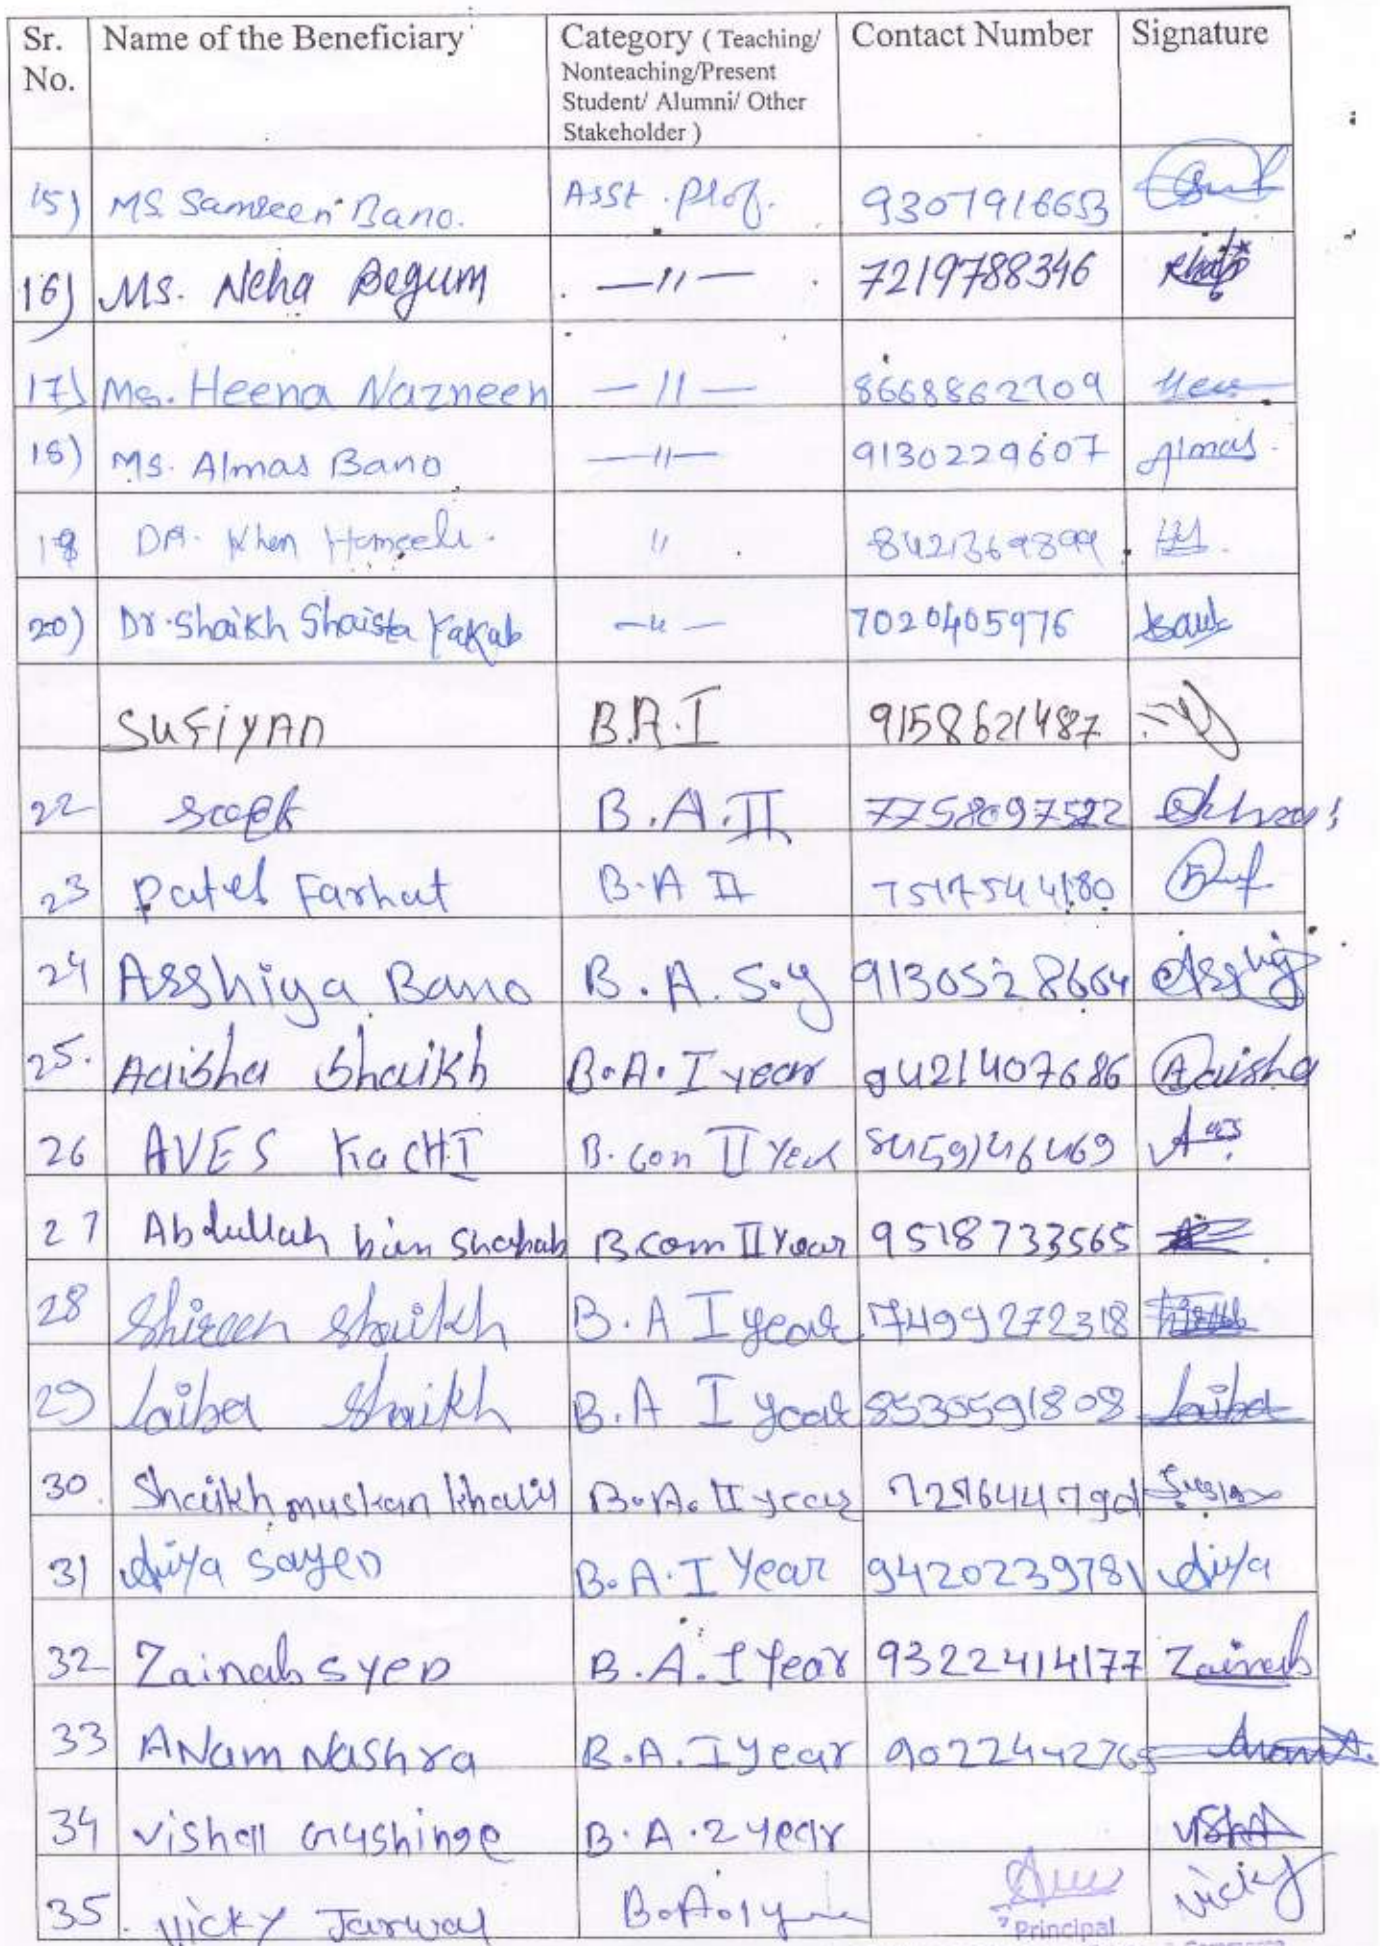 Sr. No. Name of the Beneficiary Category ( Teaching/ Nonteaching/Present Student/ Alumni/ Other Stakeholder ) Contact Number Signature
15) MS. Samreen Bano. Asst. Prof. 9307916653
16) Ms. Neha Begum —〃— 7219788346
17) Ms. Heena Nazneen —〃— 8668862709
18) Ms. Almas Bano —〃— 9130229607 Almas.
19 DR. Khan 〃 8421369899
20) Dr. Shaikh Shaista Yakab —〃— 7020405976
SUFIYAN B.A.I 9158621487
22 B.A.II 7758097522
23 Patel Farhat B.A II 7517544180
24 Asshiya Bano B.A. S.y 9130528664
25. Aaisha Shaikh B.A. I year 9421407686 Aaisha
26 AVES KaCHI B.con II Year 8459146469
27 Abdullah bin Shahab B.com II Year 9518733565
28 Shireen Shaikh B.A I year 7499272318
29 Laiba Shaikh B.A I year 8530591808 Laiba
30. Shaikh muskan khalil B.A. II year
31 Aliya Sayed B.A.I Year 9420239781 Aliya
32 Zainab SYED B.A.I Year 9322414177 Zainab
33 ANam Nashra B.A.I year 9022442765
34 vishal Ghushinge B.A.2 year vishal
35. Vicky Jarwal B.A.1 year Vicky
Principal